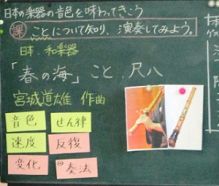 日本の楽器の音色を味わってきこう
課 ことについて知り、演奏してみよう。
日本 和楽器
「春の海」こと、尺八
宮城道雄 作曲
音色 せん律
速度 反復
変化 奏法